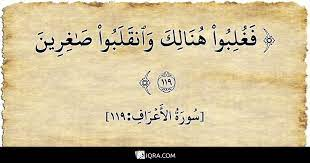 ﴿ فَغُلِبُوا۟ هُنَالِكَ وَٱنقَلَبُوا۟ صَٰغِرِينَ
﴿١١٩﴾
[سُورَةُ الأَعۡرَافِ: ١١٩]
IQRA.COM